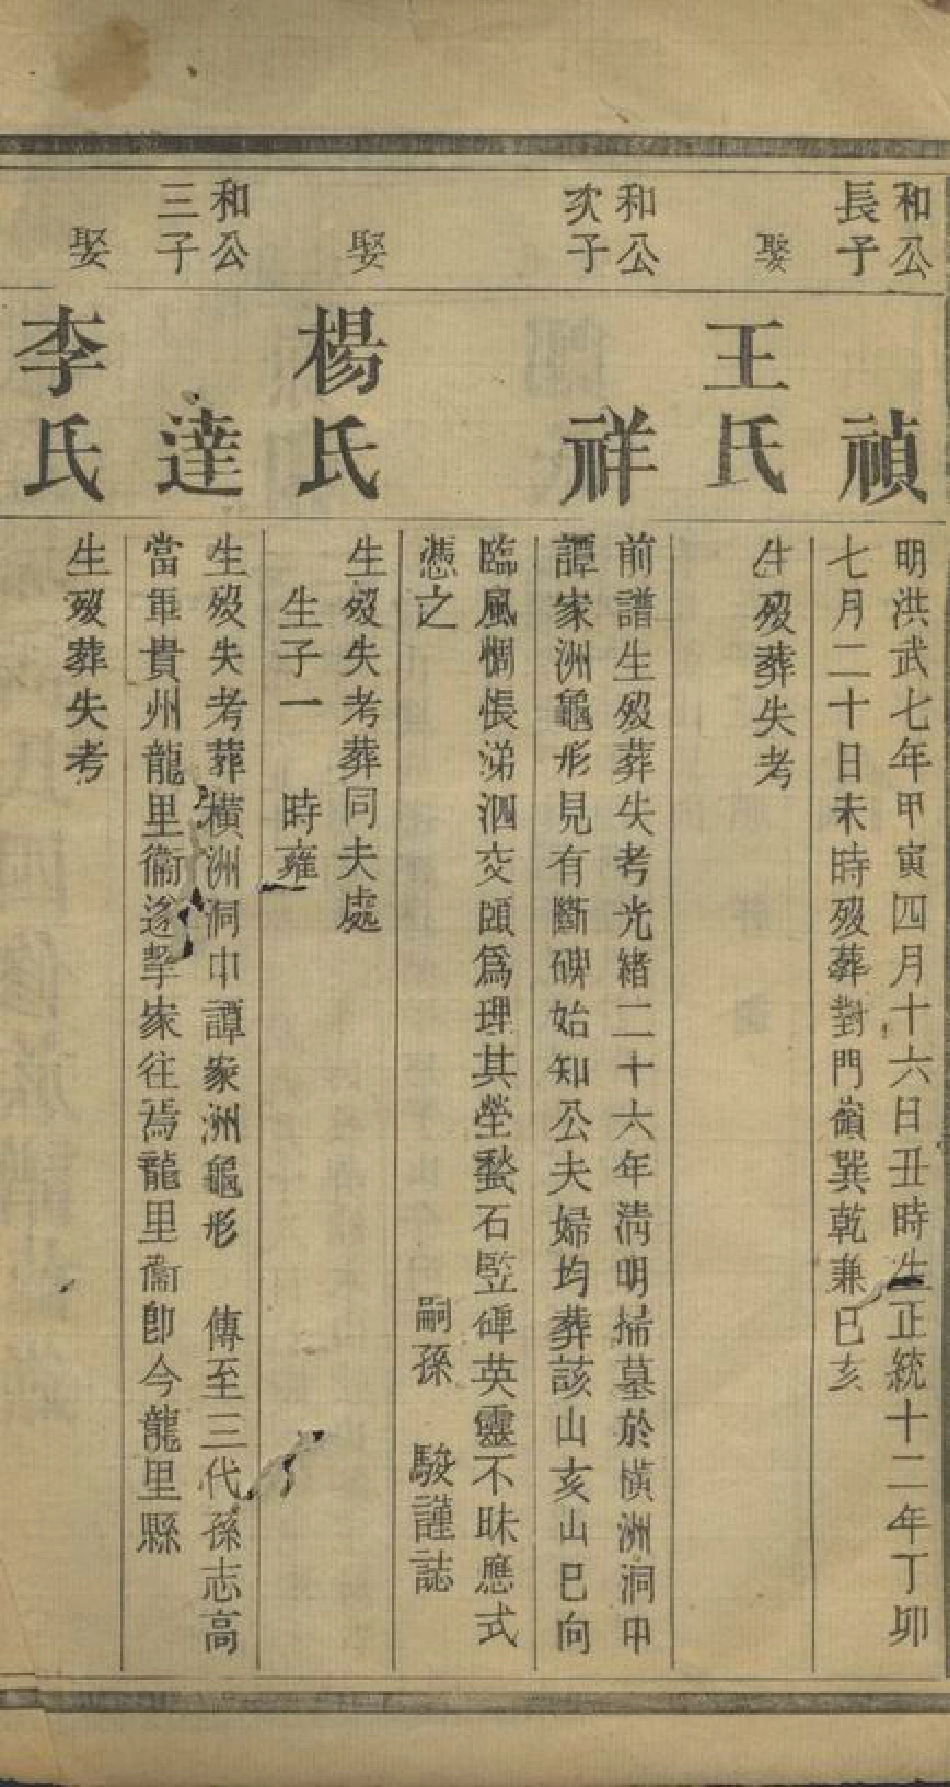 和公
長子
禎
明洪武七年甲寅四月十六日丑時生正統十二年丁卯
七月二十日未時歿葬對門嶺巽乾兼巳亥
娶
王氏
生歿葬失考
和公
次子
祥
前譜生歿葬失考光緒二十六年淸明掃墓於橫洲洞甲
譚家洲龜形見有斷碑始知公夫婦均葬該山亥山巳向
臨風惆悵涕泗交頤爲理其塋甃石竪碑英靈不昧應式
憑之 嗣孫 駿謹誌
娶
楊氏
生歿失考葬同夫處
生子一 時雍
和公
三子
達
生歿失考葬橫洲洞中譚家洲龜形 傳至三代孫志高
當軍貴州龍里衞遂挈家往焉龍里衞卽今龍里縣
娶
李氏
生歿葬失考